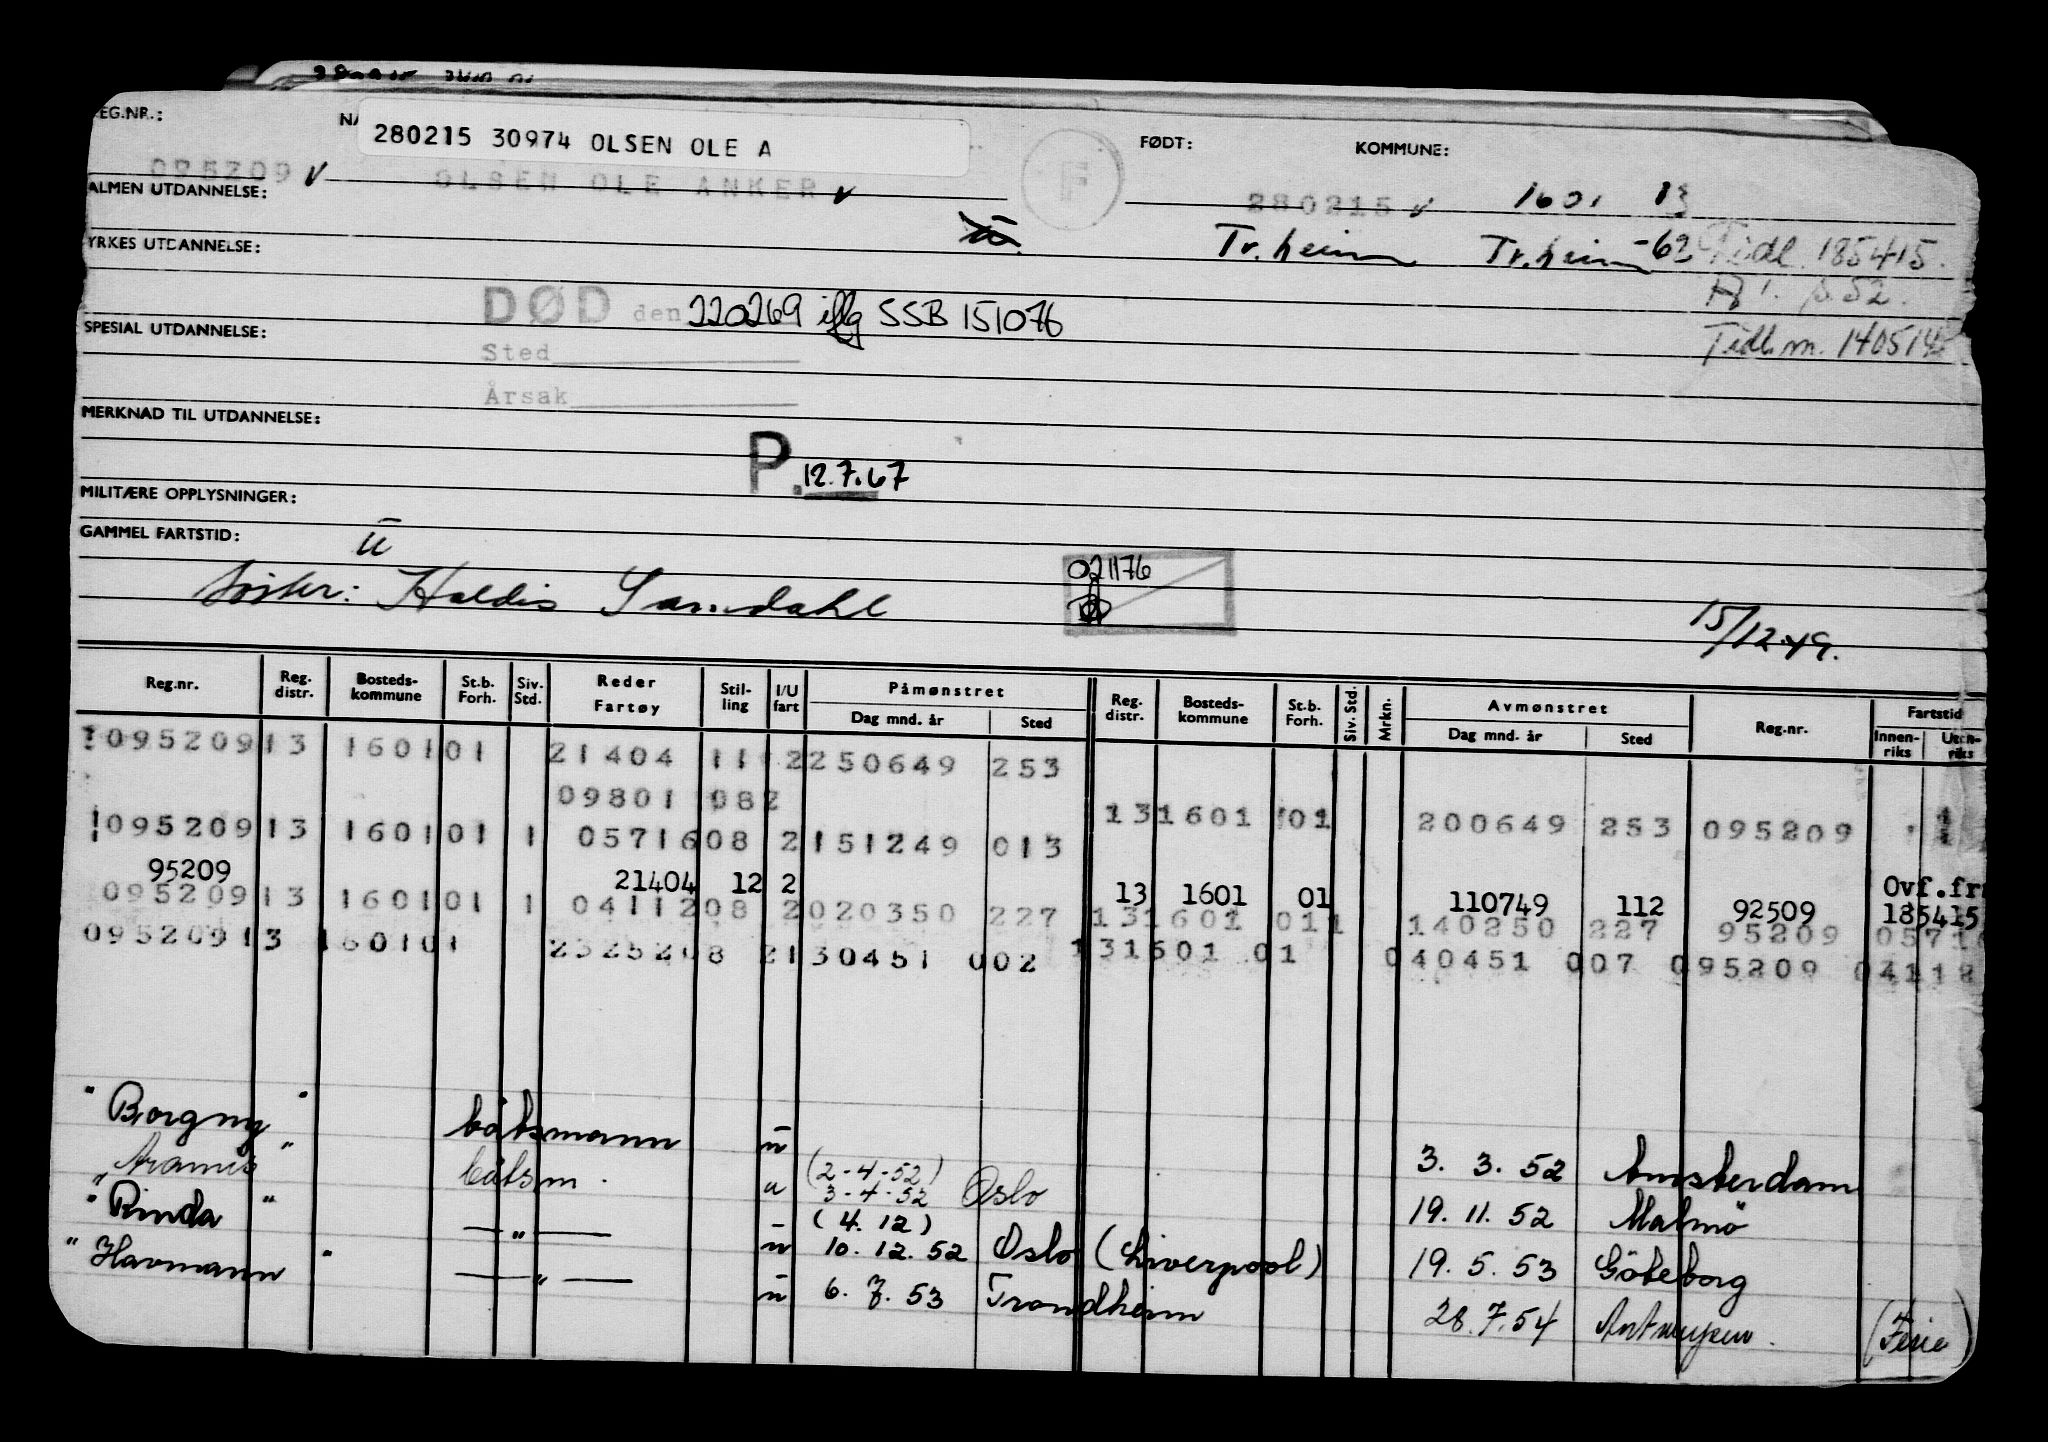 REG.NR.:
280215 30974 OLSEN OLE A
FØDT:
KOMMUNE:
095209 v OLSEN OLE ANKER v F 280215 v 1601 13
ALMEN UTDANNELSE:
Tr.heim Tr.heim -62 Tidl. 185415.
YRKES UTDANNELSE:
DØD den 220269 iflg SSB 151076
SPESIAL UTDANNELSE:
Sted
Tidl.m. 140514
Årsak
MERKNAD TIL UTDANNELSE:
P. 12.7.67
MILITÆRE OPPLYSNINGER:
GAMMEL FARTSTID: u
021176
Søster: Haldis Sandahl
15/12.49.
Reg.nr. Reg. distr. Bosteds-kommune St.b. Forh. Siv. Std. Reder Fartøy Stil-ling I/U fart Påmønstret Dag mnd. år Sted Reg. distr. Bosteds-kommune St.b. Forh. Siv. Std. Mrkn. Avmønstret Dag mnd. år Sted Reg.nr. Fartstid Innen-riks Uten-riks
095209 13 1601 01 21404 11 2 250649 253
09801 082 13 1601 01 200649 253 095209
095209 13 1601 01 1 05716 08 2 151249 013
95209 21404 12 2 13 1601 01 110749 112 92509 Ovf.fr 185415
095209 13 1601 01 1 04112 08 2 020350 227 13 1601 01 1 140250 227 95209 0571
095209 13 1601 01 23252 08 2 130451 002 131601 01 040451 007 095209 0411
"Borgny" båtsmann u 3. 3. 52 Amsterdam
"Aramis" båtsm. u (2-4-52) 3-4-52 Oslo 19. 11. 52 Malmö
"Rinda" —"— u (4.12) 10. 12. 52 Oslo (Liverpool) 19. 5. 53 Göteborg
"Havmann" —"— u 6. 7. 53 Trondheim 28.7.54 Antwerpen. (Ferie)